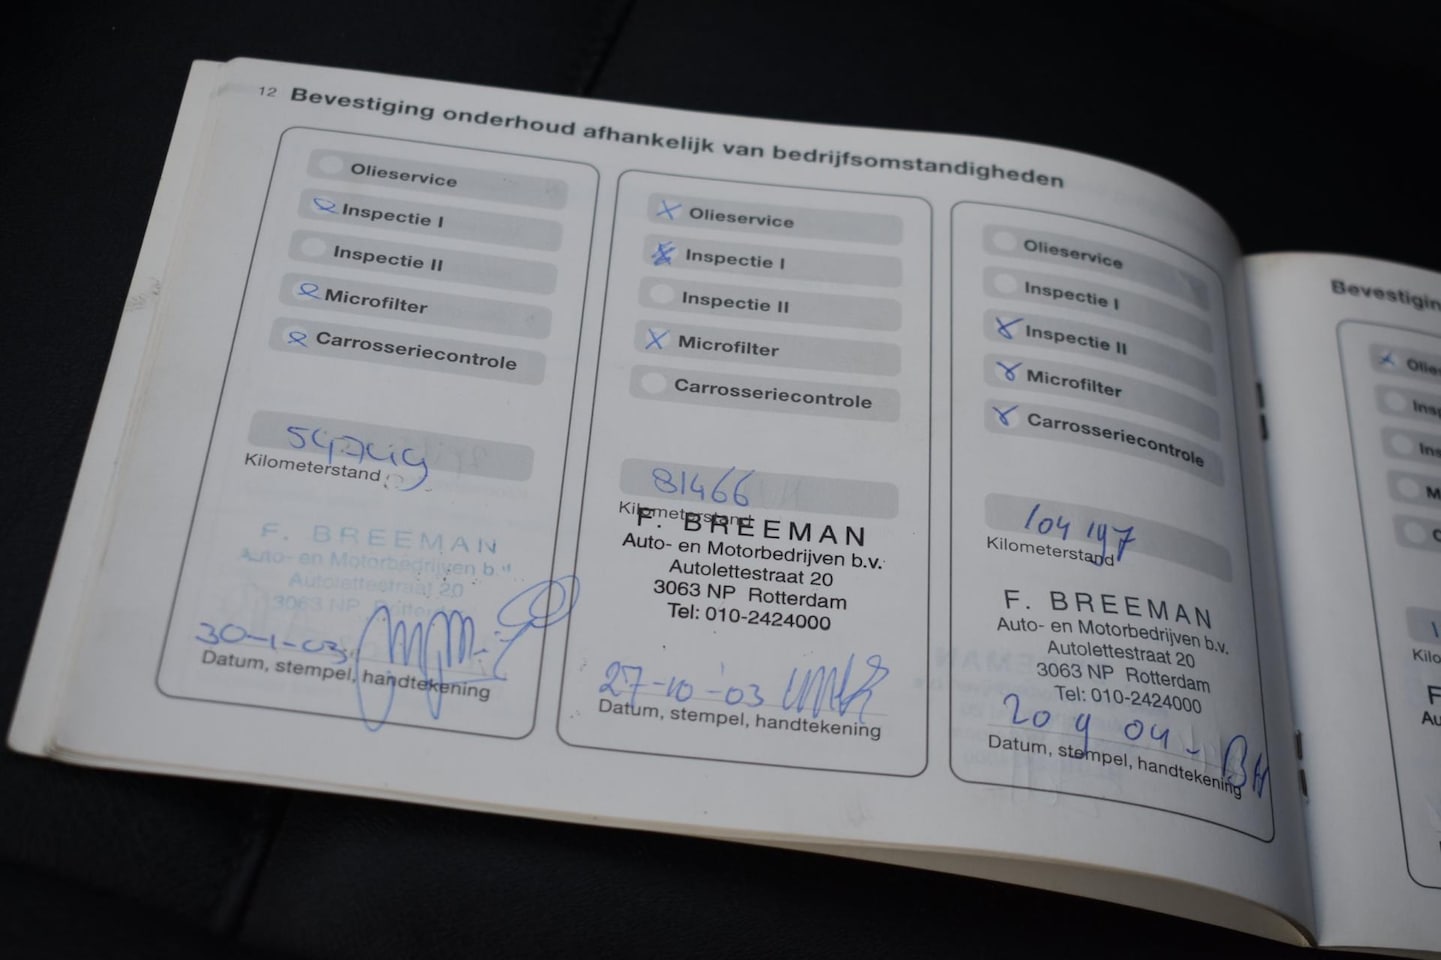 12 Bevestiging onderhoud afhankelijk van bedrijfsomstandigheden
Olieservice
Inspectie I
Inspectie II
Microfilter
Carrosseriecontrole
Kilometerstand
F. BREEMAN
Auto- en Motorbedrijven b.v.
Autolettestraat 20
3063 NP Rotterdam
30-1-03
Datum, stempel, handtekening
Olieservice
Inspectie I
Inspectie II
Microfilter
Carrosseriecontrole
81466
Kilometerstand
F. BREEMAN
Auto- en Motorbedrijven b.v.
Autolettestraat 20
3063 NP Rotterdam
Tel: 010-2424000
27-10-'03
Datum, stempel, handtekening
Olieservice
Inspectie I
Inspectie II
Microfilter
Carrosseriecontrole
104197
Kilometerstand
F. BREEMAN
Auto- en Motorbedrijven b.v.
Autolettestraat 20
3063 NP Rotterdam
Tel: 010-2424000
20 9 04 -
Datum, stempel, handtekening
Bevestigin
Olie
Ins
Ins
M
C
Kilo
F
Au